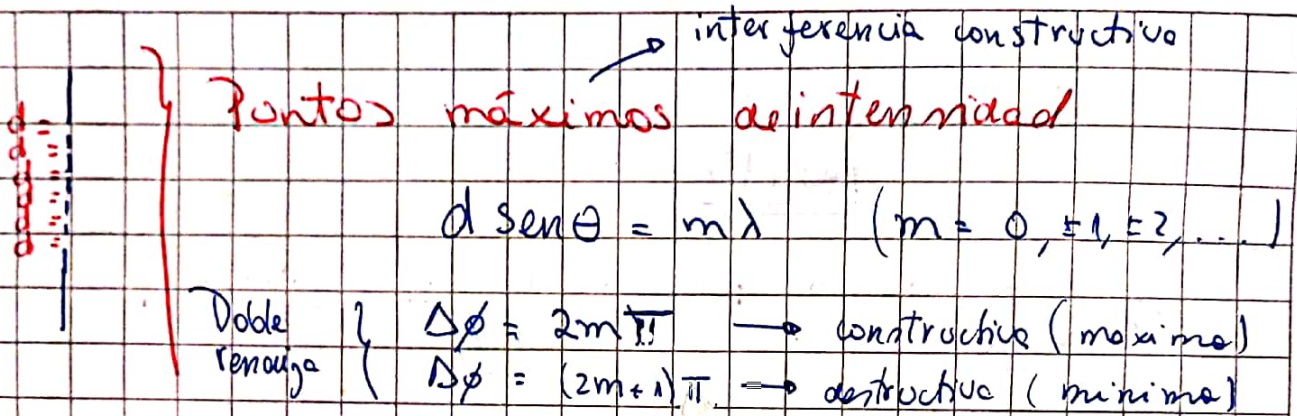 interferencia constructiva
Puntos máximos de intensidad
d
d
d
d
d
d sen θ = mλ (m = 0, ±1, ±2, ....)
Doble rendija { Δφ = 2mπ → constructiva (maximo)
Δφ = (2m+1)π → destructiva (minimo)